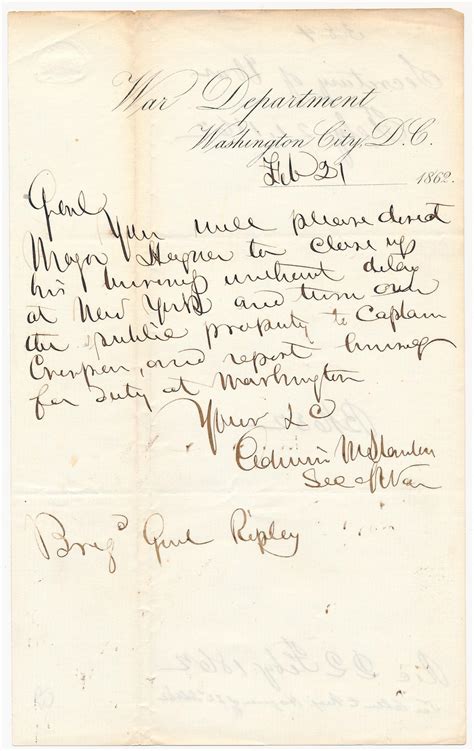 War Department
Washington City, D.C.
Feb 21 1862.
Genl
You will please direct
Major Hagner to close up
his business without delay
at New York and turn over
the public property to Captain
Crispin, and report himself
for duty at Washington
Yours &c
Edwin M Stanton
Sec of War
Brigd Genl Ripley